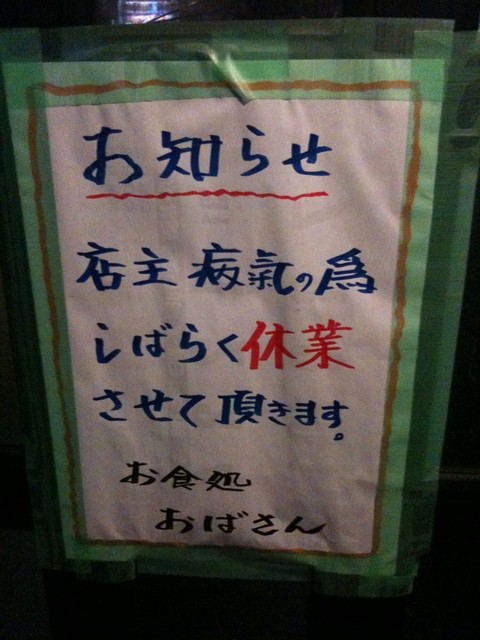 お知らせ
店主 病氣の為
しばらく休業
させて頂きます。
お食処
おばさん